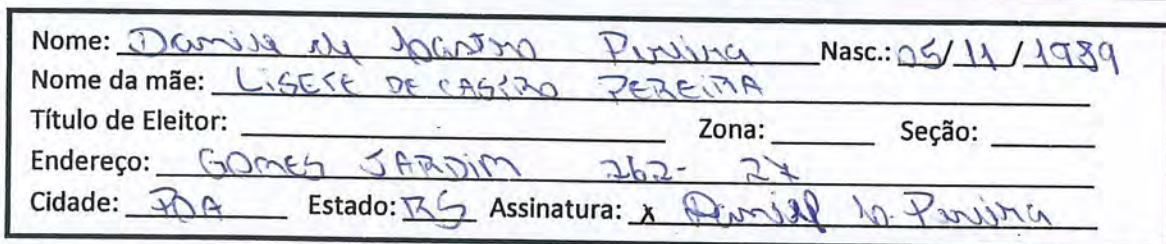 Nome: Daniel de Castro Pereira Nasc.: 05/11/1989
Nome da mãe: LISETE DE CASTRO PEREIRA
Título de Eleitor: Zona: Seção:
Endereço: GOMES JARDIM 262- 27
Cidade: POA Estado: RS Assinatura: x Daniel C. Pereira